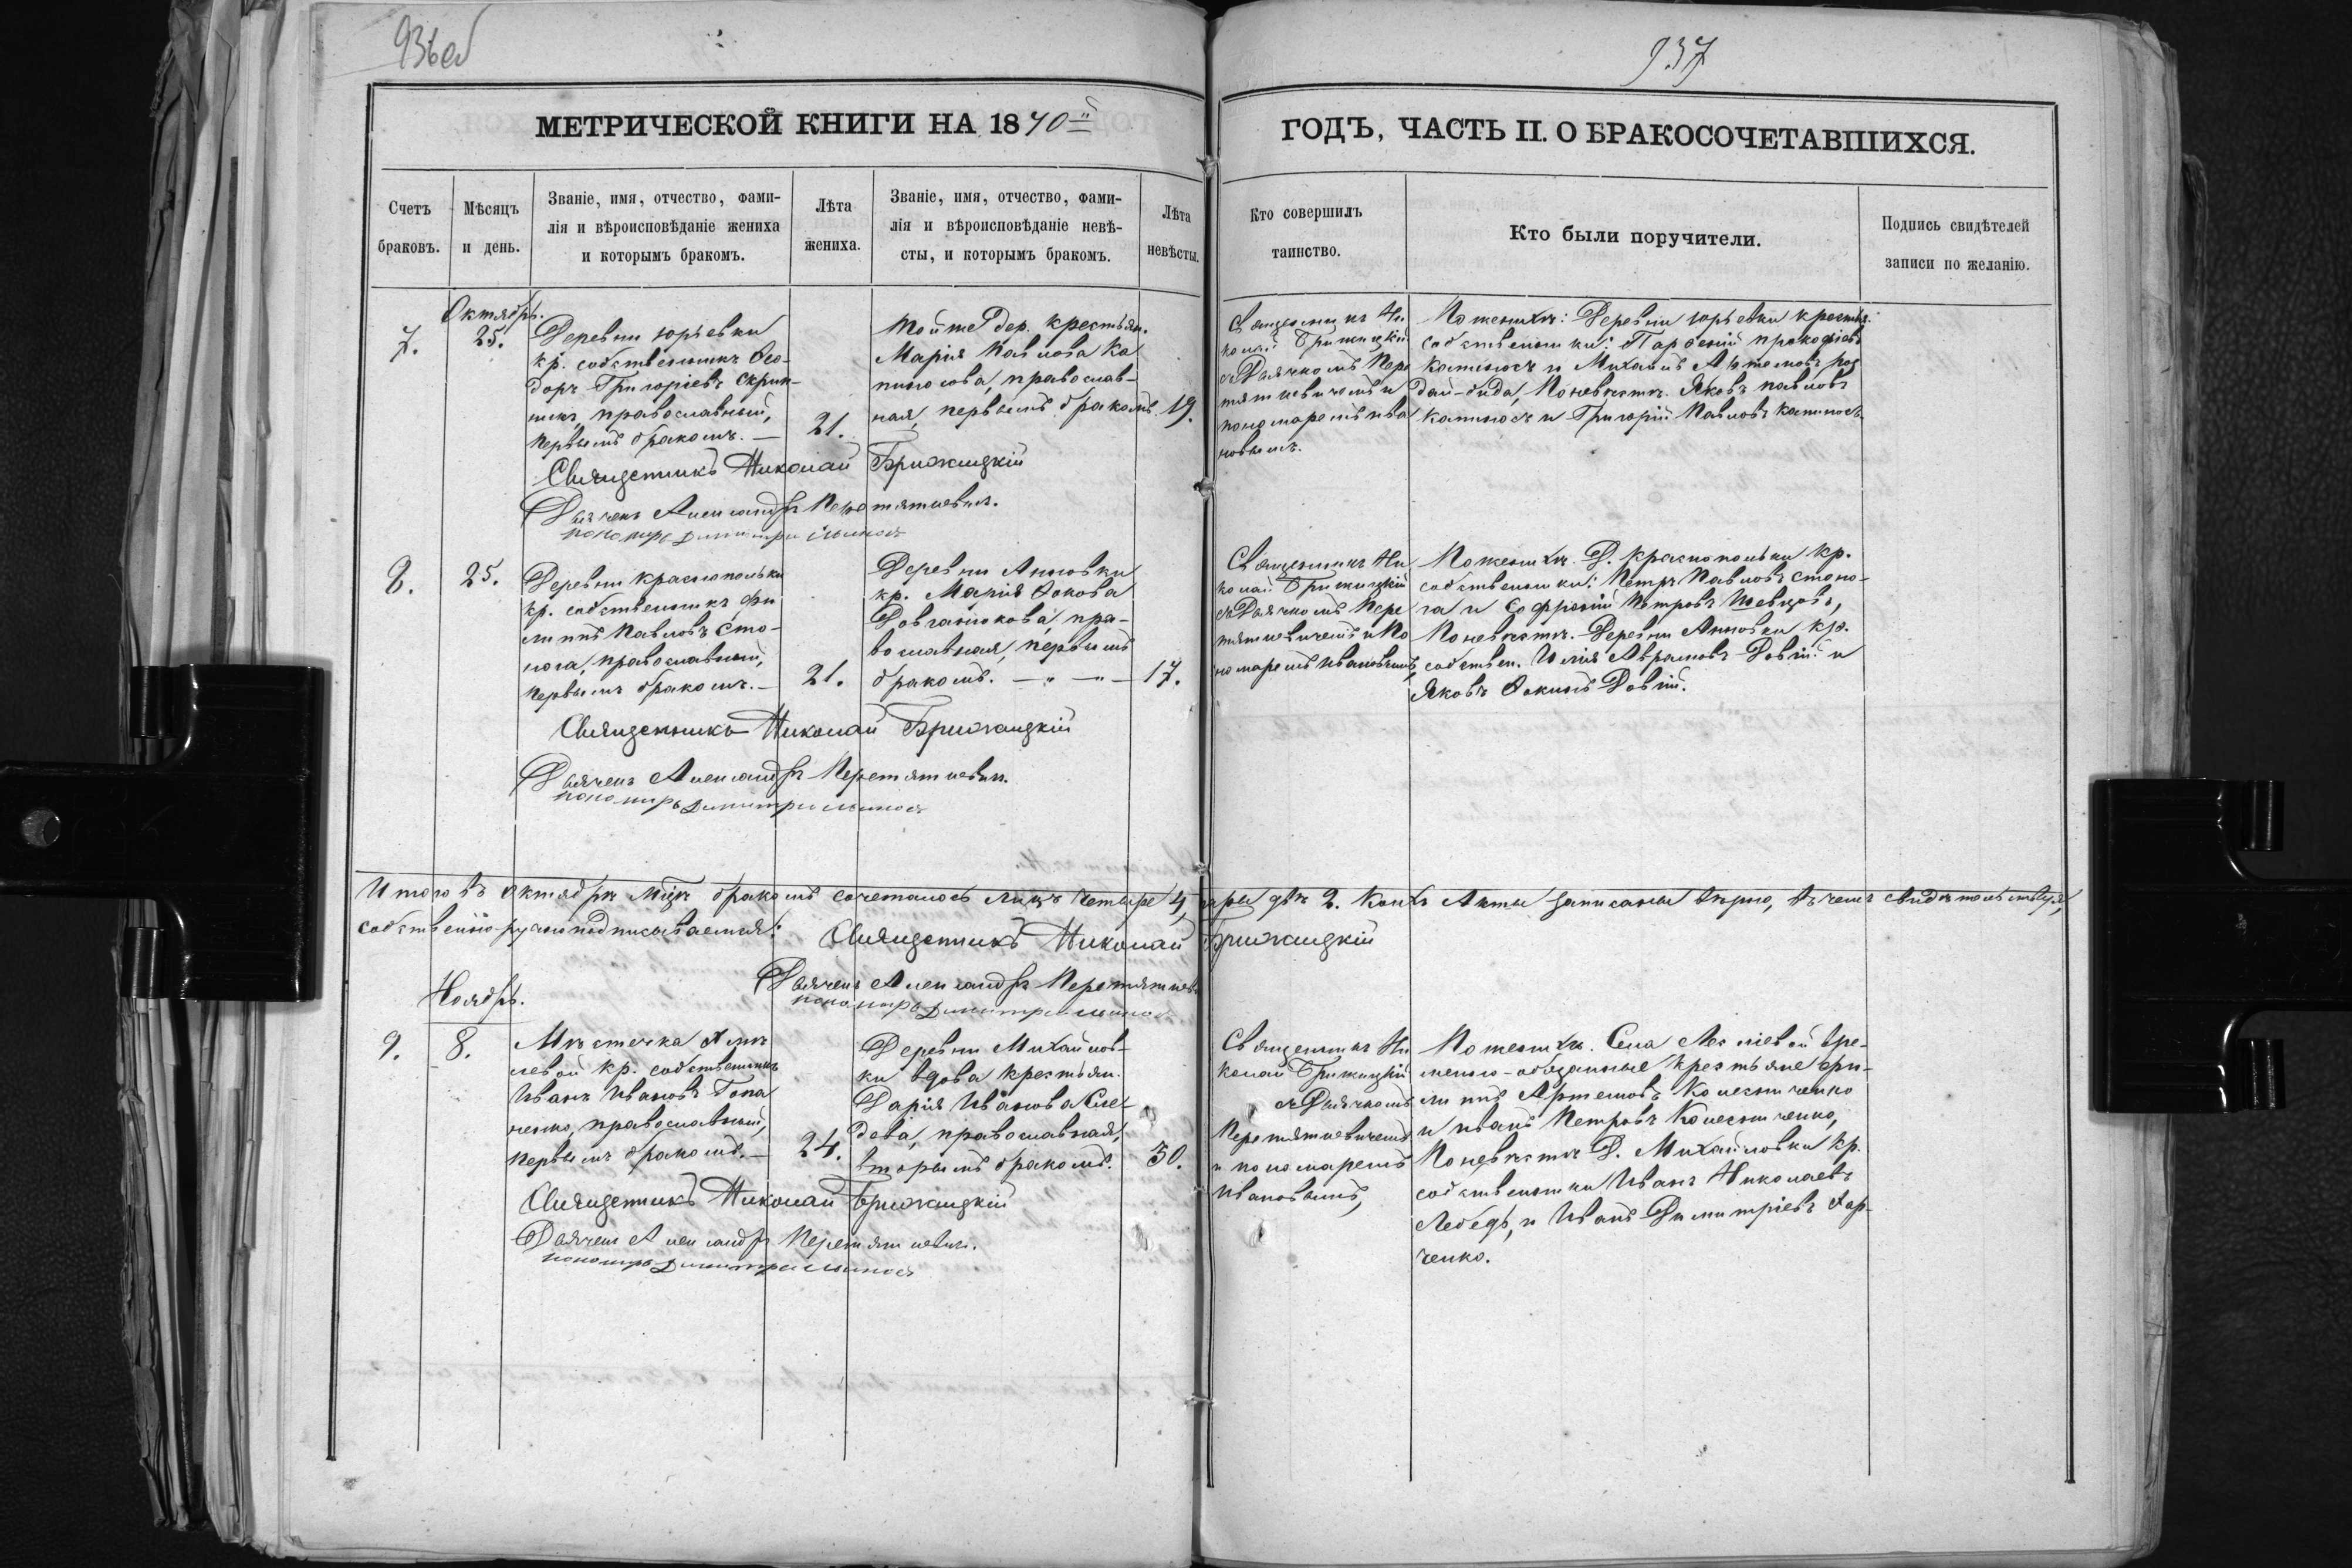 936об
937
МЕТРИЧЕСКОЙ КНИГИ НА 1870й
ГОДЪ, ЧАСТЬ II. О БРАКОСОЧЕТАВШИХСЯ.
Счетъ
браковъ.
Мѣсяцъ
и день.
Званіе, имя, отчество, фами-
лія и вѣроисповѣданіе жениха
и которымъ бракомъ.
Лѣта
жениха.
Званіе, имя, отчество, фами-
лія и вѣроисповѣданіе невѣ-
сты, и которымъ бракомъ.
Лѣта
невѣсты.
Кто совершилъ
таинство.
Кто были поручители.
Подпись свидѣтелей
записи по желанію.
Октябрь.
7.
25.
Деревни Юрьевки
кр. собственникъ Ѳео-
доръ Григоріевъ Скрип-
никъ, православный,
первымъ бракомъ. —
21.
Тойже дер. крестьян.
Марія Павлова Ка
православ-
ная, первымъ бракомъ.
19.
Священникъ Ни
колай Брижицкій
съ Дьячкомъ Пере
тяткевичемъ и
пономаремъ Ива
новымъ.
По женихѣ: Деревни Юрьевки крестья.
собственники: Парѳеній Прокофіевъ
и Михаилъ
По невѣстѣ. Яковъ Павловъ
и Григорій Павловъ
Священникъ Николай Брижицкій
Дьячекъ Александръ Перетяткевичъ.
пономарь Димитрій Ивановъ
8.
25.
Деревни Краснопольки
кр. собственникъ Фи
липпъ Павловъ Сто-
нога, православный,
первымъ бракомъ. —
21.
Деревни Анновки
кр. Марія Фокова
Довганюкова, пра-
вославная, первымъ
бракомъ. — " — " —
17.
Священникъ Ни
колай Брижицкій
съ Дьячкомъ Пере
тяткевичемъ и По
номаремъ Ивановымъ,
По женихѣ. Д. Краснопольки кр.
собственники: Петръ Павловъ Стоно-
га и Софроній Петровъ Шевцовъ,
По невѣстѣ. Деревни Анновки кр.
собствен. Илія Аврамовъ Довгій и
Яковъ Фокинъ Довгій.
Священникъ Николай Брижицкій
Дьячекъ Александръ Перетяткевичъ.
пономарь Димитрій Ивановъ
Итого въ Октябрѣ Мцѣ бракомъ сочеталось лицъ четыре 4, пары двѣ 2. Коихъ Акты записаны вѣрно, въ чемъ свидѣтельствуя,
собственноручно подписываемся:
Священникъ Николай Брижицкій
Дьячекъ Александръ Перетяткев
пономарь Димитрій Ивановъ
Ноябрь.
9.
8.
Мѣстечка
левой кр. собственникъ
Иванъ Ивановъ Гопа
ченко, православный,
первымъ бракомъ. —
24.
Деревни Михайлов-
ки вдова крестьян.
Дарія Иванова
православная,
вторымъ бракомъ.
30.
Священникъ Ни
колай Брижицкій
съ Дьячкомъ
Перетяткевичемъ
и пономаремъ
Ивановымъ,
По женихѣ. Села вре-
менно-обязанные крестьяне Фи-
липпъ Артемовъ Колесниченко
и Иванъ Петровъ Колесниченко,
По невѣстѣ Д. Михайловки кр.
собственники Иванъ Николаевъ
Лебедь, и Иванъ Димитріевъ Хар-
ченко.
Священникъ Николай Брижицкій
Дьячекъ Александръ Перетяткевичъ.
пономарь Димитрій Ивановъ